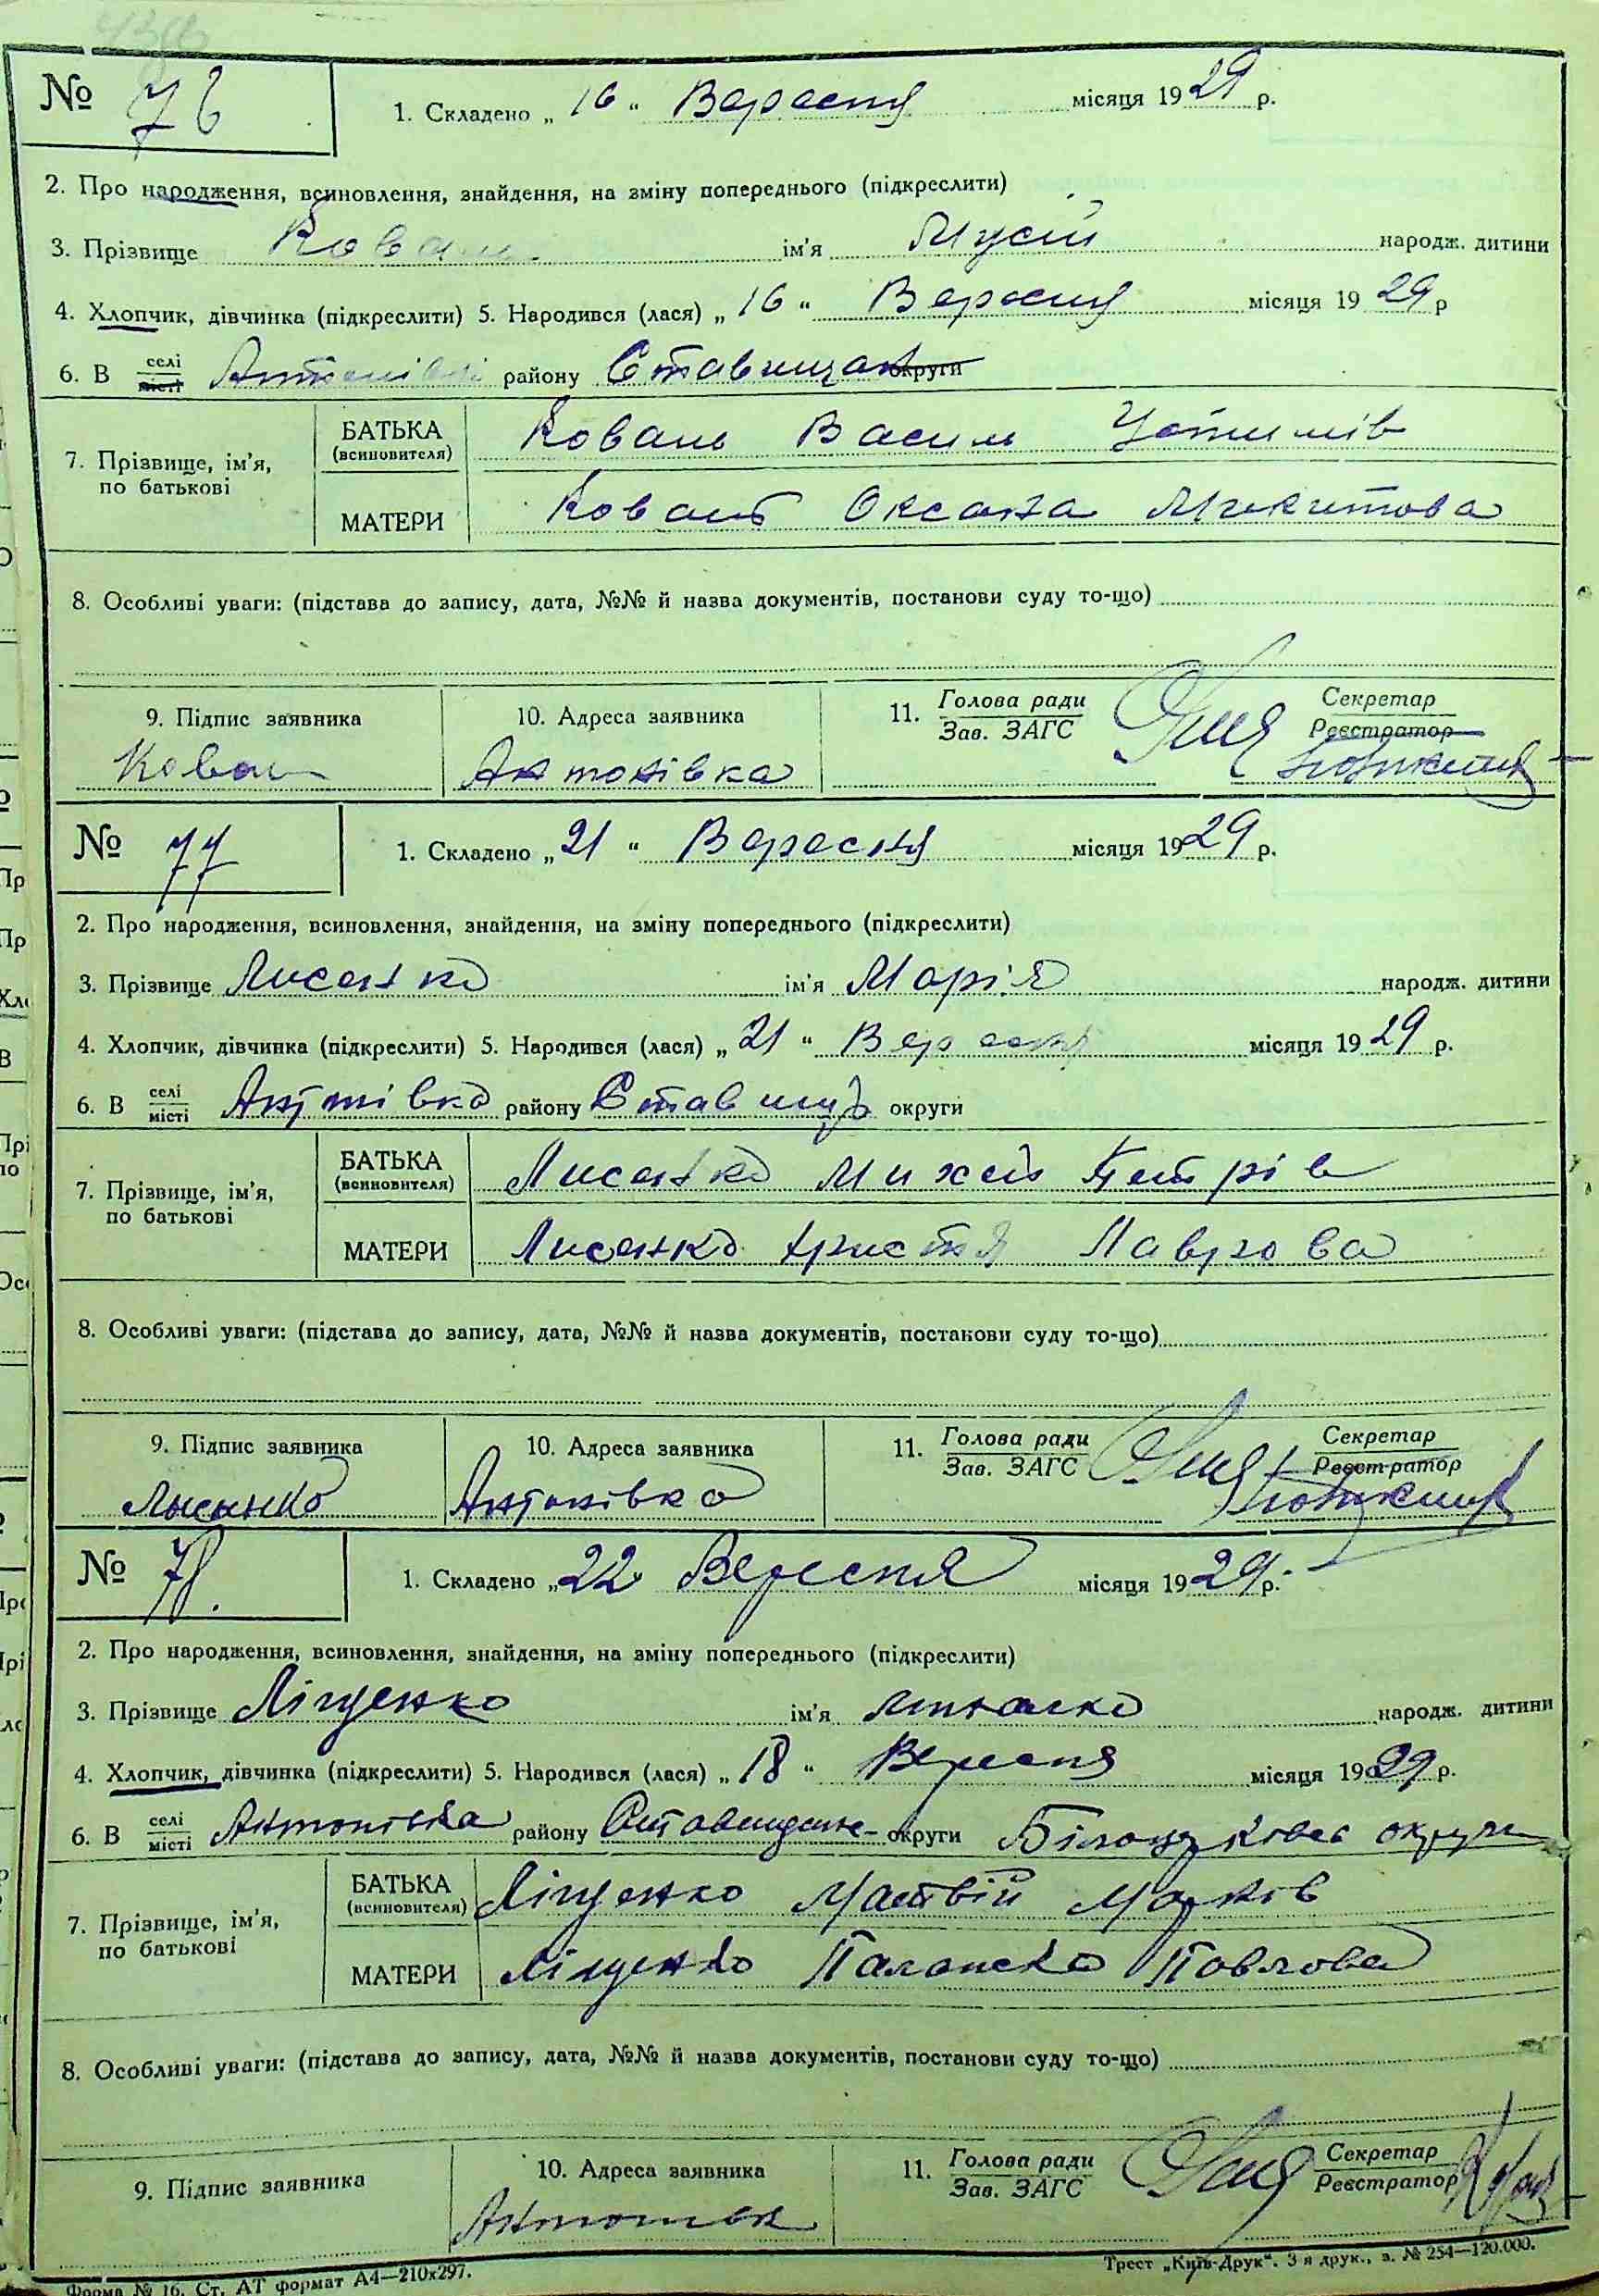 № 76
1. Складено „16“ Вересня місяця 1929 р.
2. Про народження, всиновлення, знайдення, на зміну попереднього (підкреслити)
3. Прізвище Коваль ім'я Мусій народж. дитини
4. Хлопчик, дівчинка (підкреслити) 5. Народився (лася) „16“ Вересня місяця 1929 р
6. В селі місті Антонівці району Ставища округи
7. Прізвище, ім'я, по батькові
БАТЬКА (всиновителя) Коваль Василь
МАТЕРИ Коваль Оксана Микитова
8. Особливі уваги: (підстава до запису, дата, №№ й назва документів, постанови суду то-що)
9. Підпис заявника 10. Адреса заявника 11. Голова ради Зав. ЗАГС Секретар Реєстратор
Коваль Антонівка
№ 77
1. Складено „21“ Вересня місяця 1929 р.
2. Про народження, всиновлення, знайдення, на зміну попереднього (підкреслити)
3. Прізвище Лисенко ім'я Марія народж. дитини
4. Хлопчик, дівчинка (підкреслити) 5. Народився (лася) „21“ Вересня місяця 1929 р.
6. В селі місті району округи
7. Прізвище, ім'я, по батькові
БАТЬКА (всиновителя) Лисенко Петрів
МАТЕРИ Лисенко Христя Лаврова
8. Особливі уваги: (підстава до запису, дата, №№ й назва документів, постанови суду то-що)
9. Підпис заявника 10. Адреса заявника 11. Голова ради Зав. ЗАГС Секретар Реєстратор
Лысенко Антонівка
№ 78.
1. Складено „22 Вересня місяця 1929 р.
2. Про народження, всиновлення, знайдення, на зміну попереднього (підкреслити)
3. Прізвище Ліщенко ім'я народж. дитини
4. Хлопчик, дівчинка (підкреслити) 5. Народився (лася) „18“ Вересня місяця 1929 р.
6. В селі місті Антонівка району округи округи
7. Прізвище, ім'я, по батькові
БАТЬКА (всиновителя) Ліщенко Матвій Марків
МАТЕРИ Ліщенко Палажка Павлова
8. Особливі уваги: (підстава до запису, дата, №№ й назва документів, постанови суду то-що)
9. Підпис заявника 10. Адреса заявника 11. Голова ради Зав. ЗАГС Секретар Реєстратор
Форма № 16. Ст. АТ формат А4—210х297. Трест „Київ-Друк“. 3 я друк., з. № 254—120.000.